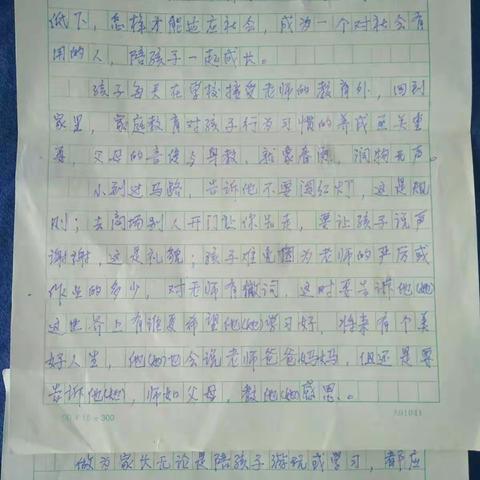 低下，怎样才能适应社会，成为一个对社会有
用的人，陪孩子一起成长。
孩子每天在学校接受老师的教育外，回到
家里，家庭教育对孩子行为习惯的养成至关重
要，父母的言传与身教，就象春雨，润物无声。
小到过马路，告诉他不要闯红灯，这是规
则；去商场别人开门让你先走，要让孩子说声
谢谢，这是礼貌；孩子难免因为老师的严厉或
作业的多少，对老师有微词，这时要告诉他(她)
这世界上有谁更希望他(她)学习好，将来有个美
好人生，他(她)也会说老师爸爸妈妈，但还是要
告诉他(她)，师如父母，教他(她)感恩。
20×15=300
做为家长无论是陪孩子游玩或学习，都应